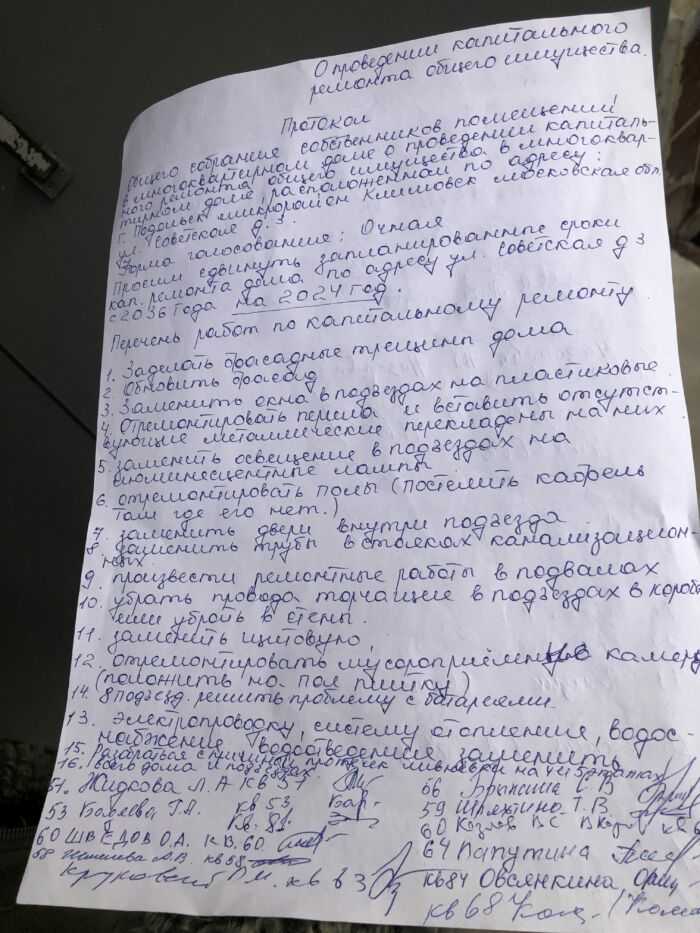 О проведении капитального
ремонта общего имущества.
Протокол
Общего собрания собственников помещений
в многоквартирном доме о проведении капиталь-
ного ремонта общего имущества в многоквар-
тирном доме, расположенном по адресу:
г. Подольск микрорайон Климовск московская обл.
ул. Советская д. 3.
Форма голосования: Очная
Просим сдвинуть запланированные сроки
кап. ремонта дома по адресу ул. Советская д 3
с 2036 года на 2024 год.
Перечень работ по капитальному ремонту
1. Заделать фасадные трещины дома
2. Обновить фасад
3. Заменить окна в подъездах на пластиковые.
4. Отремонтировать перила и вставить отсутст-
вующие металлические перекладены на них
5. заменить освещение в подъездах на
люминесцентные лампы
6. отремонтировать полы (постелить кафрель
там где его нет.)
7. заменить двери внутри подъезда
8. Заменить трубы в стояках канализацион-
ных.
9. произвести ремонтные работы в подвалах
10. убрать провода торчащие в подъездах в короба
или убрать в стены.
11. заменить щитовую,
12. отремонтировать мусороприёмную камеру
(положить на пол плитку)
14. 8 подъезд. решить проблему с батареями.
13. электропроводку, систему отопления, водос-
набжение, водоотведение заменить
15. Разобраться с причиной протечек ливнёвки на 4 и 5 этажах
16. всего дома и подъездах.
57. Жидкова Л.А кв 57
66 С.В
53 Бабаева Г.А. кв 53,
кв. 81.
59 Т.В
60 Козлов В С
60 ШВЕДОВ О.А. КВ. 60.
64 Папутина
58 А.В. кв 58
кв 84 Овсянкина
Круковский кв 83
кв 68